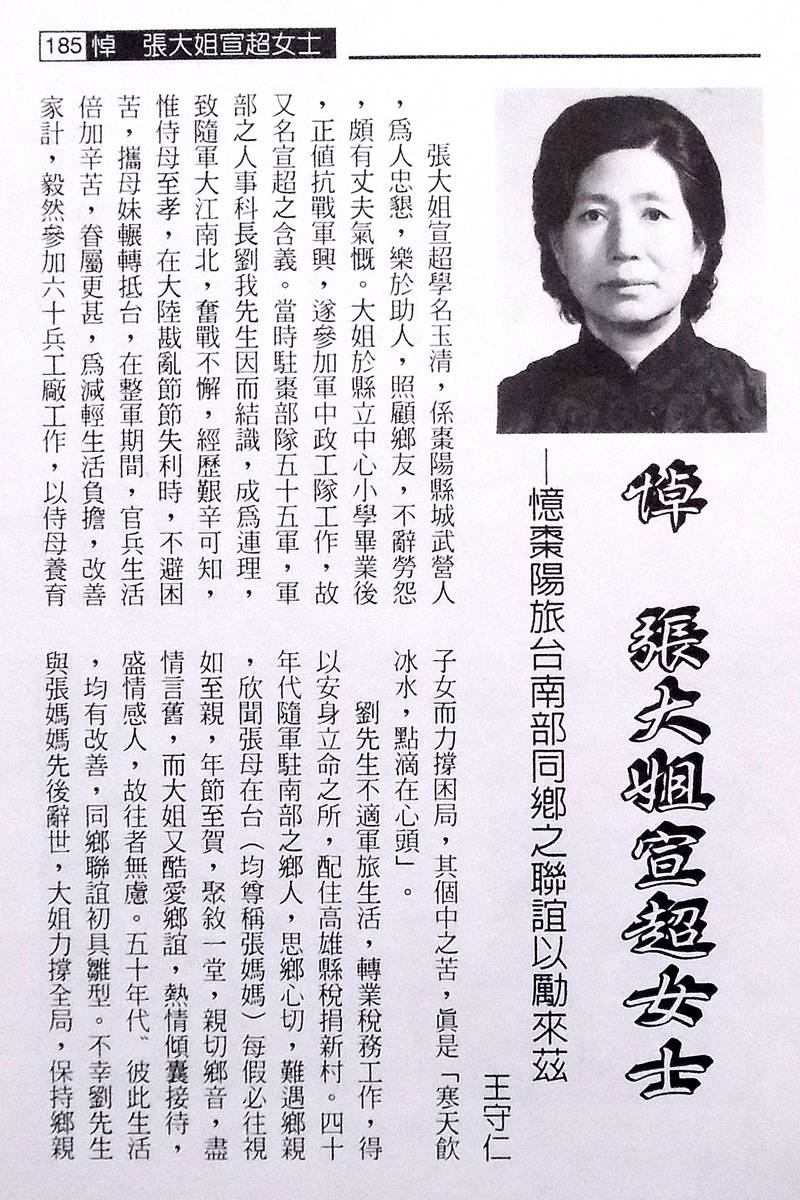 185 悼　張大姐宣超女士
悼　張大姐宣超女士
—憶棗陽旅台南部同鄉之聯誼以勵來茲
王守仁
張大姐宣超學名玉清，係棗陽縣城武營人
，爲人忠懇，樂於助人，照顧鄉友，不辭勞怨
，頗有丈夫氣慨。大姐於縣立中心小學畢業後
，正值抗戰軍興，遂參加軍中政工隊工作，故
又名宣超之含義。當時駐棗部隊五十五軍，軍
部之人事科長劉我先生因而結識，成爲連理，
致隨軍大江南北，奮戰不懈，經歷艱辛可知，
惟侍母至孝，在大陸戡亂節節失利時，不避困
苦，攜母妹輾轉抵台，在整軍期間，官兵生活
倍加辛苦，眷屬更甚，爲減輕生活負擔，改善
家計，毅然參加六十兵工廠工作，以侍母養育
子女而力撐困局，其個中之苦，眞是「寒天飲
冰水，點滴在心頭」。
劉先生不適軍旅生活，轉業稅務工作，得
以安身立命之所，配住高雄縣稅捐新村。四十
年代隨軍駐南部之鄉人，思鄉心切，難遇鄉親
，欣聞張母在台（均尊稱張媽媽）每假必往視
如至親，年節至賀，聚敘一堂，親切鄉音，盡
情言舊，而大姐又酷愛鄉誼，熱情傾囊接待，
盛情感人，故往者無慮。五十年代〝彼此生活
，均有改善，同鄉聯誼初具雛型。不幸劉先生
與張媽媽先後辭世，大姐力撐全局，保持鄉親